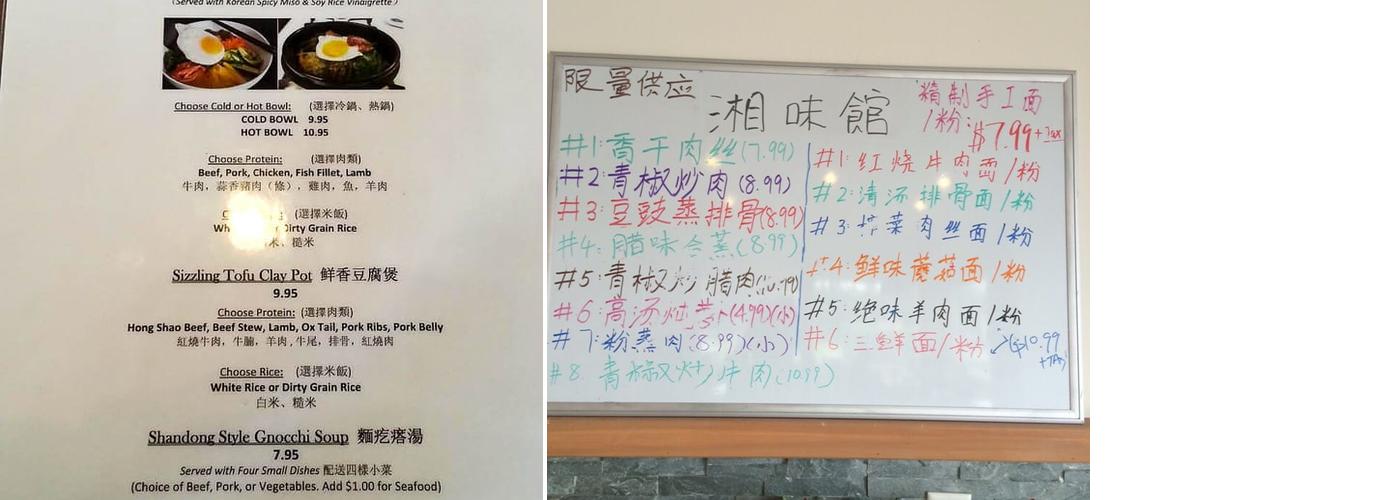 (Served with Korean Spicy Miso & Soy Rice Vinaigrette)
Choose Cold or Hot Bowl: (選擇冷鍋、熱鍋)
COLD BOWL 9.95
HOT BOWL 10.95
Choose Protein: (選擇肉類)
Beef, Pork, Chicken, Fish Fillet, Lamb
牛肉，蒜香豬肉（條），雞肉，魚，羊肉
(選擇米飯)
Dirty Grain Rice
米、糙米
Sizzling Tofu Clay Pot 鮮香豆腐煲
9.95
Choose Protein: (選擇肉類)
Hong Shao Beef, Beef Stew, Lamb, Ox Tail, Pork Ribs, Pork Belly
紅燒牛肉，牛腩，羊肉，牛尾，排骨，紅燒肉
Choose Rice: (選擇米飯)
White Rice or Dirty Grain Rice
白米、糙米
Shandong Style Gnocchi Soup 麵疙瘩湯
7.95
Served with Four Small Dishes 配送四樣小菜
(Choice of Beef, Pork, or Vegetables. Add $1.00 for Seafood)
限量供应
湘味館
精制手工面
/粉: $7.99+Tax
#1: 香干肉丝(7.99)
#2: 青椒炒肉(8.99)
#3: 豆豉蒸排骨(8.99)
#4: 腊味合蒸(8.99)
#5: 青椒炒腊肉
#6: 高汤炖萝卜(4.99)(小)
#7: 粉蒸肉(8.99)(小)
#8. 青椒炒牛肉(10.99)
#1: 红烧牛肉面/粉
#2: 清汤排骨面/粉
#3: 榨菜肉丝面/粉
#4: 鲜味蘑菇面/粉
#5: 绝味羊肉面/粉
#6: 三鲜面/粉
10.99
+TAX